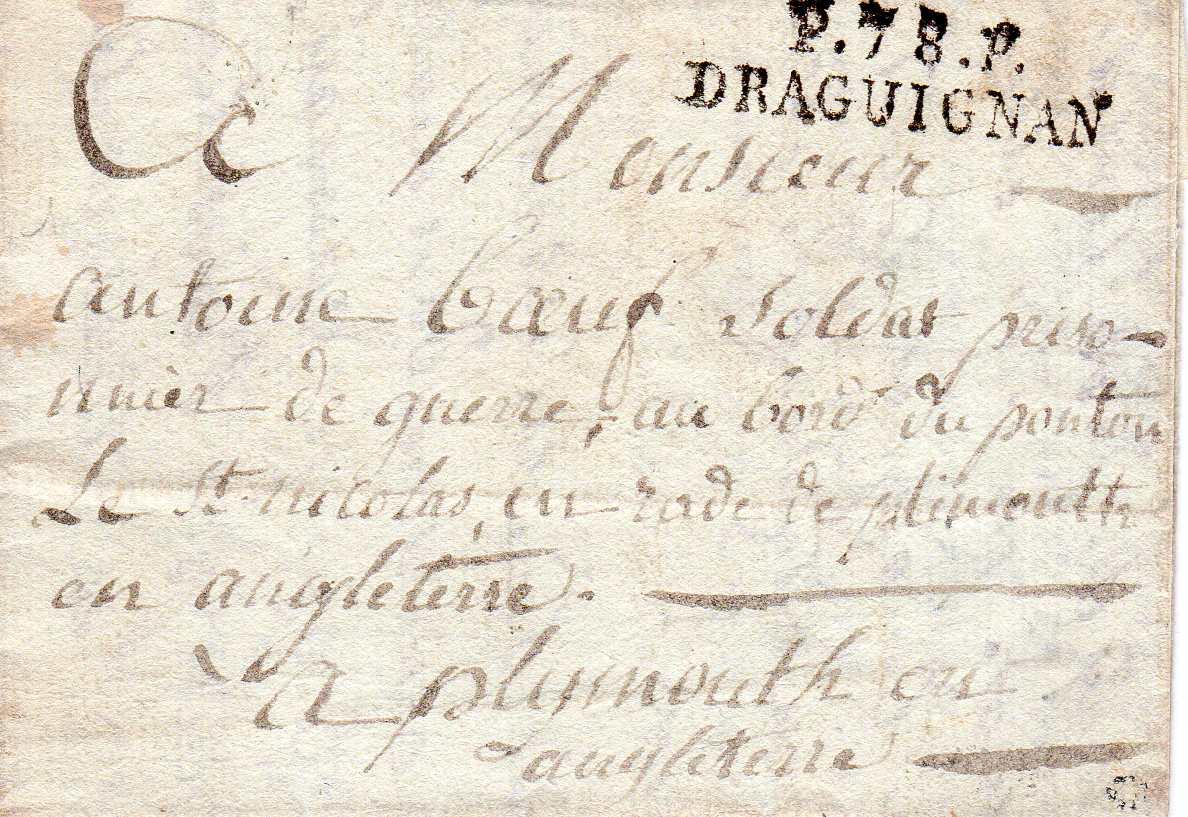 P.78.P.
DRAGUIGNAN
A Monsieur
antoine bœuf soldat priso-
nnier de guerre, au bord du ponton
Le St. nicolas, en rade de plimouth
en angleterre.
a plymouth en
angleterre